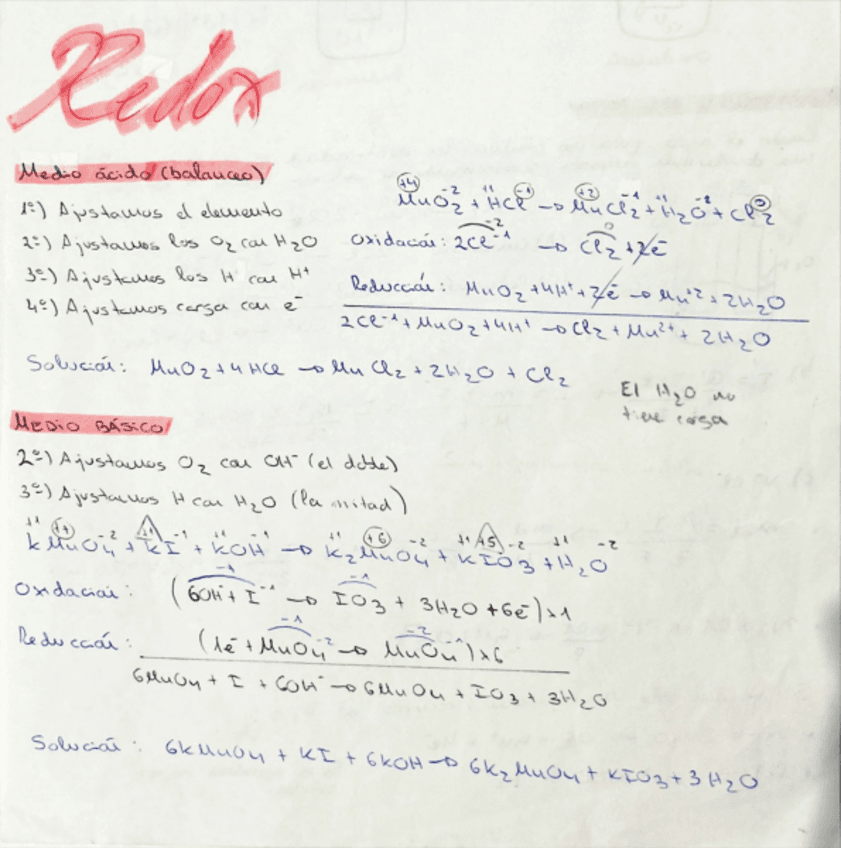 Redox
Medio ácido (balanceo)
1º) Ajustamos el elemento
2º) Ajustamos los O₂ con H₂O
3º) Ajustamos los H con H⁺
4º) Ajustamos carga con e⁻
+4 -2 +1 -1 +2 -1 +1 -2 0
MnO₂ + HCl → MnCl₂ + H₂O + Cl₂
Oxidación: 2Cl⁻¹ → Cl₂ + 2e⁻
Reducción: MnO₂ + 4H⁺ + 2e⁻ → Mn⁺² + 2H₂O
2Cl⁻¹ + MnO₂ + 4H⁺ → Cl₂ + Mn²⁺ + 2H₂O
Solución: MnO₂ + 4HCl → MnCl₂ + 2H₂O + Cl₂
El H₂O no
tiene carga
MEDIO BÁSICO
2º) Ajustamos O₂ con OH⁻ (el doble)
3º) Ajustamos H con H₂O (la mitad)
+1 +7 -2 +1 -1 +1 -1 +1 +6 -2 +1 +5 -2 +1 -2
KMnO₄ + KI + KOH → K₂MnO₄ + KIO₃ + H₂O
Oxidación: (6OH⁻ + I⁻¹ → IO₃ + 3H₂O + 6e⁻) x1
Reducción: (1e⁻ + MnO₄⁻² → MnO₄⁻¹) x6
6MnO₄ + I + 6OH⁻ → 6MnO₄ + IO₃ + 3H₂O
Solución: 6KMnO₄ + KI + 6KOH → 6K₂MnO₄ + KIO₃ + 3H₂O